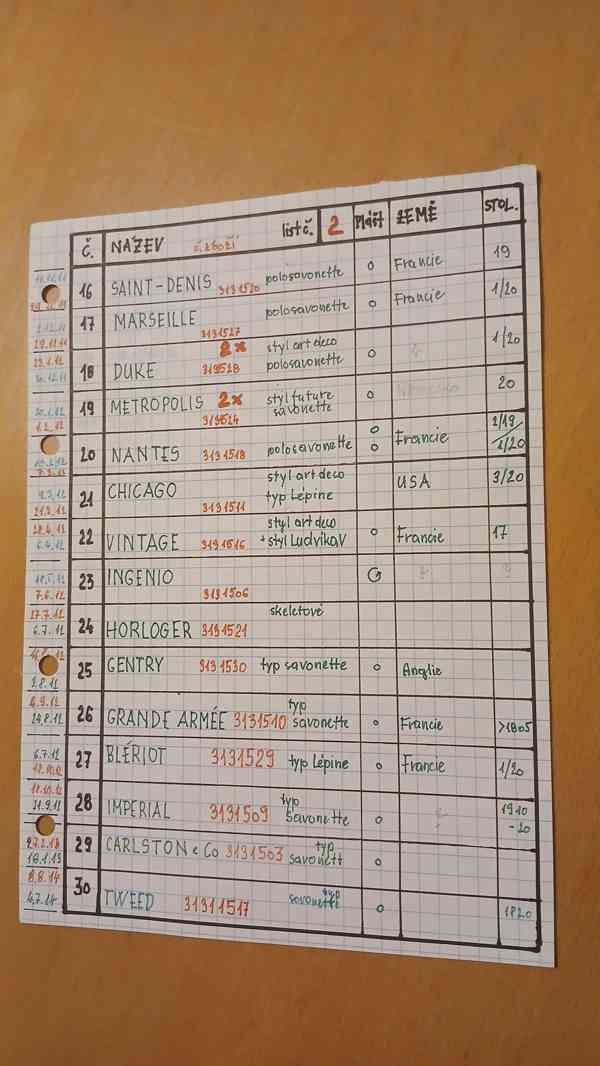 Č. NÁZEV č.zboží list č. 2 Plášť ZEMĚ STOL.
16 SAINT-DENIS 3131520 polosavonette o Francie 19
17 MARSEILLE 3131527 polosavonette o Francie 1/20
29.11.11
18 DUKE 2x 319528 styl art deco polosavonette o 1/20
19 METROPOLIS 2x 313524 styl future savonette o 20
1.2.12
20 NANTES 3131518 polosavonette o o Francie 2/19 1/20
21 CHICAGO 3131511 styl art deco typ Lépine USA 3/20
22 VINTAGE 3131516 styl art deco + styl Ludvíka V o Francie 17
6.4.12
23 INGENIO 3131506
7.6.12
24 HORLOGER 3131521 skeletové
27.7.12
6.7.12
25 GENTRY 3131530 typ savonette o Anglie
2.8.12
26 GRANDE ARMÉE 3131510 typ savonette o Francie >1805
4.9.12
24.8.12
27 BLÉRIOT 3131529 typ Lépine o Francie 1/20
6.7.12
28 IMPERIAL 3131509 typ savonette o 1910 -20
29 CARLSTON & Co 3131503 typ savonett o
16.1.13
30 TWEED 31311517 typ savonette o 1820
8.8.14
4.7.14